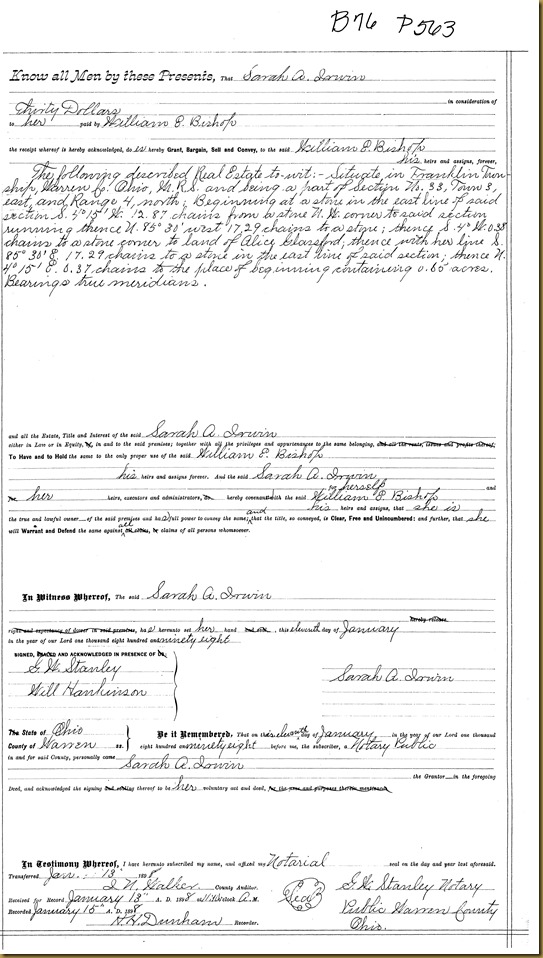 B76 P563
Know all Men by these Presents, That Sarah A. Irwin
in consideration of
Thirty Dollars
to her paid by William P. Bishop
the receipt whereof is hereby acknowledged, do es hereby Grant, Bargain, Sell and Convey, to the said William P. Bishop
his heirs and assigns, forever,
The following described Real Estate to-wit:- Situate in Franklin Town-
ship, Warren Co. Ohio, M.R.S. and being a part of Section No. 33, Town 3,
east, and Range 4, north; Beginning at a stone in the east line of said
section S. 4° 15' W. 12.87 chains from a stone N.W. corner to said section
running thence N. 85° 30' west 17.29 chains to a stone; thence S. 4° W. 0.38
chains to a stone corner to land of Alice Glassford; thence with her line S.
85° 30' E. 17.29 chains to a stone in the east line of said section; thence N.
4° 15' E. 0.37 chains to the place of beginning containing 0.65 acres.
Bearings true meridians.
and all the Estate, Title and Interest of the said Sarah A. Irwin
either in Law or in Equity, of, in and to the said premises; together with all the privileges and appurtenances to the same belonging, and all the rents, issues and profits thereof,
To Have and to Hold the same to the only proper use of the said William P. Bishop
his heirs and assigns forever. And the said Sarah A. Irwin
for herself and
her heirs, executors and administrators, do hereby covenant with the said William P. Bishop
his heirs and assigns, that she is
the true and lawful owner of the said premises and has full power to convey the same; and that the title, so conveyed, is Clear, Free and Unincumbered: and further, that she
will Warrant and Defend the same against all claims of all persons whomsoever.
In Witness Whereof, The said Sarah A. Irwin
hereby release
right and expectancy of dower in said premises, has hereunto set her hand and seal, this eleventh day of January
in the year of our Lord one thousand eight hundred and ninety eight
SIGNED, SEALED AND ACKNOWLEDGED IN PRESENCE OF US;
G. W. Stanley
Will Hankinson
Sarah A. Irwin
The State of Ohio
County of Warren ss.
Be it Remembered, That on this eleventh day of January in the year of our Lord one thousand
eight hundred and ninety eight before me, the subscriber, a Notary Public
in and for said County, personally came Sarah A. Irwin
the Grantor in the foregoing
Deed, and acknowledged the signing and sealing thereof to be her voluntary act and deed, for the uses and purposes therein mentioned.
In Testimony Whereof, I have hereunto subscribed my name, and affixed my Notarial seal on the day and year last aforesaid.
Transferred Jan. 13" 1898
County Auditor.
Received for Record January 13" A. D. 1898 at o'clock A. M.
Recorded January 15" A. D. 1898
Dunham Recorder.
Seal
G. W. Stanley Notary
Public Warren County
Ohio.